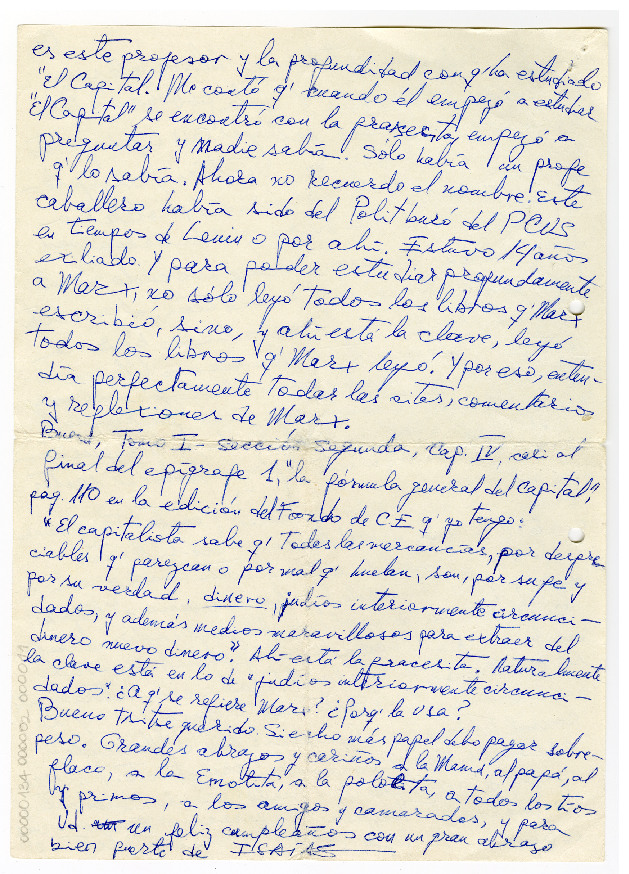 es este profesor y la profundidad con q' ha estudiado
"El Capital. Me contó q' cuando él empezó a estudiar
"El Capital" se encontró con la fracesita, empezó a
preguntar y nadie sabía. Sólo había un profe
q' lo sabía. Ahora no recuerdo el nombre. Este
caballero había sido del Politburó del PCUS
en tiempos de Lenin o por ahí. Estuvo 14 años
exiliado. Y para poder estudiar profundamente
a Marx, no sólo leyó todos los libros q' Marx
escribió, sino, y ahí está la clave, leyó
todos los libros q' Marx leyó! Y por eso, enten-
día perfectamente todas las citas, comentarios
y reflexiones de Marx.
Bueno, Tomo I - Sección Segunda, Cap. IV, casi al
final del epígrafe 1, "la fórmula general del Capital",
pag. 110 en la edición del Fondo de C E q' yo tengo:
"El capitalista sabe q' todas las mercancías, por despre
ciables q' parezcan o por mal q' huelan, son, por su fe y
por su verdad, dinero, judíos interiormente circunci-
dados, y además medios maravillosos para extraer del
dinero nuevo dinero". Ahí está la fracesita. Naturalmente
la clave está en lo de "judíos interiormente circunci-
dados". ¿A q' se refiere Marx? ¿Porq' la usa?
Bueno querido. Si echo más papel debo pagar sobre-
peso. Grandes abrazos y cariños a la Mamá, al papá, al
flaco, a la a la a todos los tíos
y primos, a los amigos y camaradas, y para
Ud. un feliz cumpleaños con un gran abrazo
bien fuerte de ISAÍAS
00000134 000002 000011